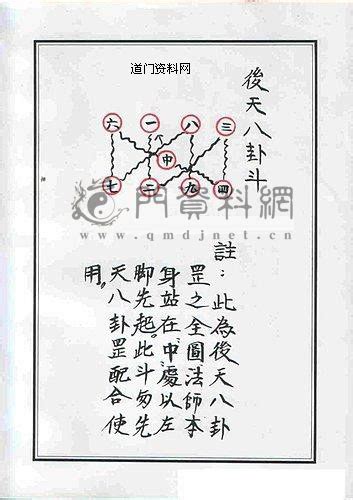 道门资料网
後天八卦斗
六 一 八 三
中
七 二 九 四
門資料網
註：此為後天八卦
罡之全圖法師本
身站在"中"處以左
脚先起。此斗勿先
天八卦罡配合使
用。